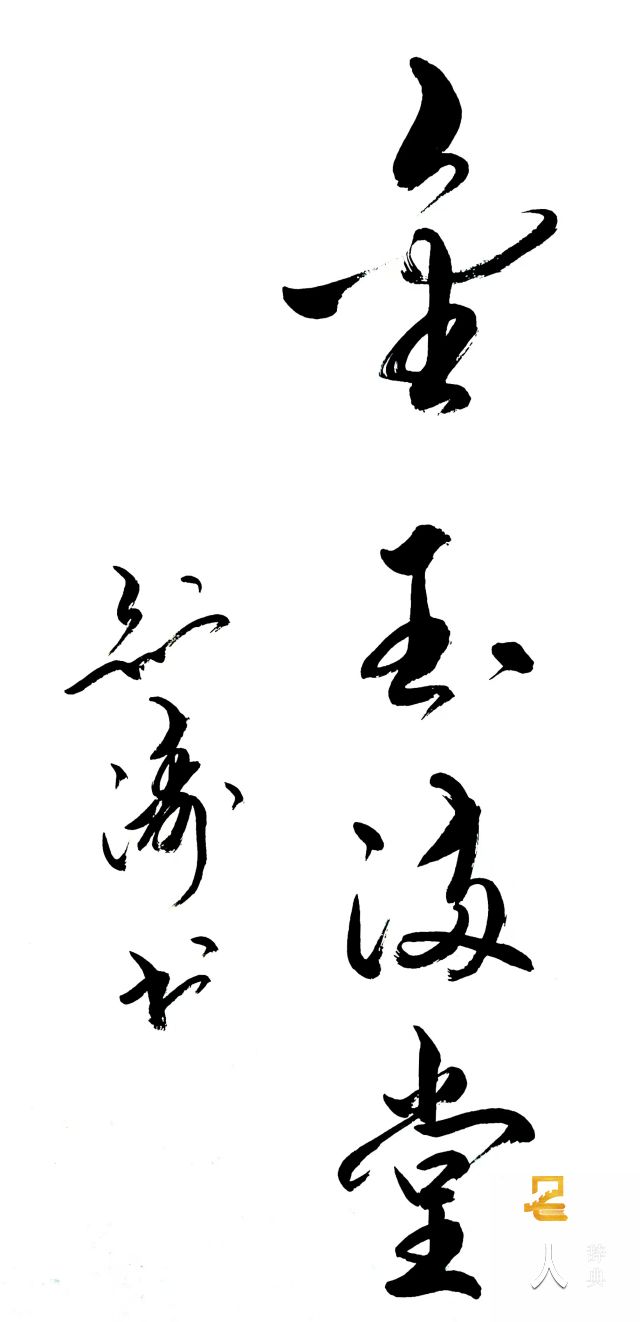 金玉满堂
涛书
名人
辞典